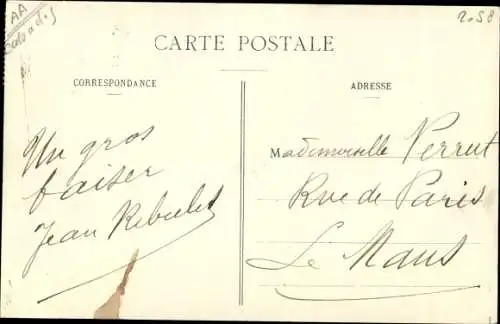 AA
Calvados
2.58
CARTE POSTALE
CORRESPONDANCE
ADRESSE
Un gros
baiser
Jean
Mademoiselle Perrut
Rue de Paris
Le Mans